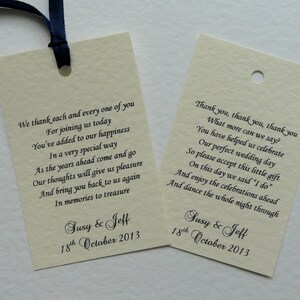 We thank each and every one of you
For joining us today
You've added to our happiness
In a very special way
As the years ahead come and go
Our thoughts will give us pleasure
And bring you back to us again
In memories to treasure
Susy & Jeff
18th October 2013
Thank you, thank you, thank you
What more can we say?
You have helped us celebrate
Our perfect wedding day
So please accept this little gift
On this day we said "I do"
And enjoy the celebrations ahead
And dance the whole night through
Susy & Jeff
18th October 2013